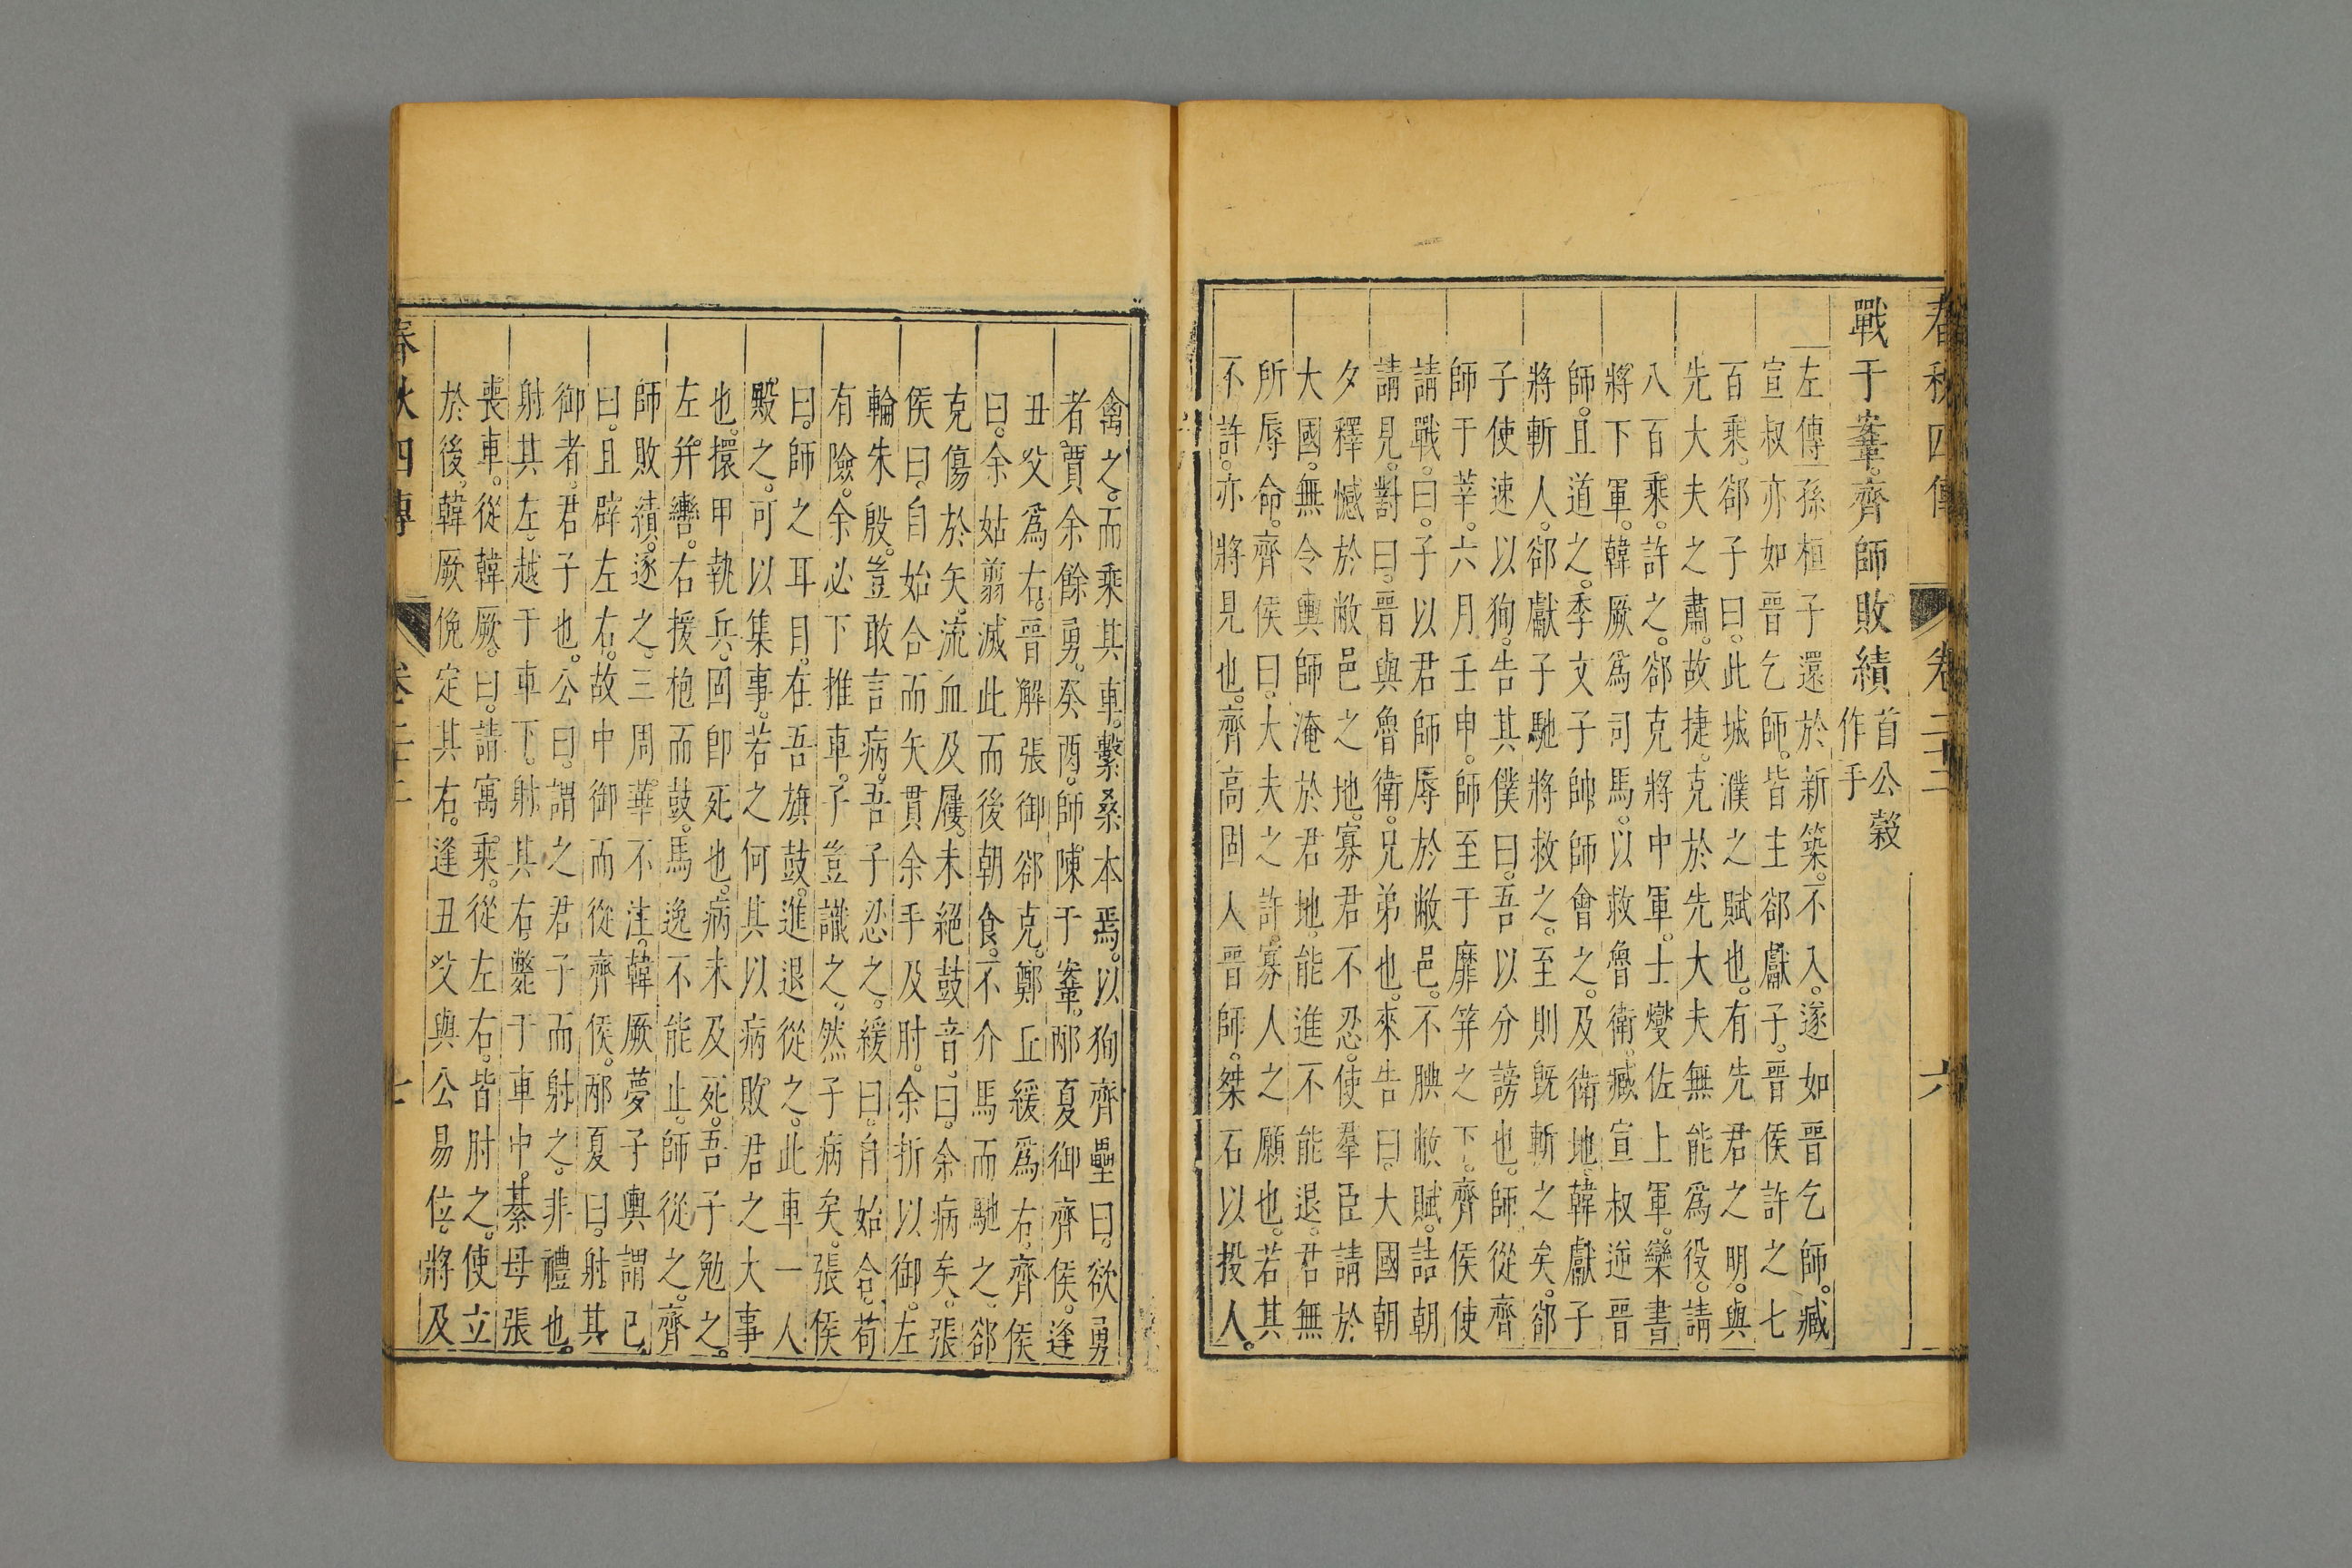 春秋四傳 卷二十二 六
戰于鞌。齊師敗績 首公穀作手
左傳 孫桓子還於新築。不入。遂如晉乞師。臧
宣叔亦如晉乞師。皆主郤獻子。晉侯許之七
百乘。郤子曰。此城濮之賦也。有先君之明。與
先大夫之肅。故捷。克於先大夫無能爲役。請
八百乘。許之。郤克將中軍。士燮佐上軍。欒書
將下軍。韓厥爲司馬。以救魯衛。臧宣叔逆晉
師。且道之。季文子帥師會之。及衛地。韓獻子
將斬人。郤獻子馳將救之。至則旣斬之矣。郤
子使速以狥。告其僕曰。吾以分謗也。師從齊
師于莘。六月壬申。師至于靡笄之下。齊侯使
請戰。曰。子以君師辱於敝邑。不腆敝賦。詰朝
請見。對曰。晉與魯衛。兄弟也。來告曰。大國朝
夕釋憾於敝邑之地。寡君不忍。使羣臣請於
大國。無令輿師淹於君地。能進不能退。君無
所辱命。齊侯曰。大夫之許。寡人之願也。若其
不許。亦將見也。齊高固入晉師。桀石以投人。
禽之。而乘其車。繫桑本焉。以狥齊壘曰。欲勇
者。賈余餘勇。癸酉。師陳于鞌。邴夏御齊侯。逢
丑父爲右。晉解張御郤克。鄭丘緩爲右。齊侯
曰。余姑翦滅此而後朝食。不介馬而馳之。郤
克傷於矢。流血及屨。未絕鼓音。曰。余病矣。張
侯曰。自始合而矢貫余手及肘。余折以御。左
輪朱殷。豈敢言病。吾子忍之。緩曰。自始合。苟
有險。余必下推車。子豈識之。然子病矣。張侯
曰。師之耳目。在吾旗鼓。進退從之。此車一人
殿之。可以集事。若之何其以病敗君之大事
也。擐甲執兵。固卽死也。病未及死。吾子勉之。
左幷轡。右援枹而鼓。馬逸不能止。師從之。齊
師敗績。逐之。三周華不注。韓厥夢子輿謂已
曰。且辟左右。故中御而從齊侯。邴夏曰。射其
御者。君子也。公曰。謂之君子而射之。非禮也。
射其左。越于車下。射其右。斃于車中。綦毋張
喪車。從韓厥。曰。請寓乘。從左右。皆肘之。使立
於後。韓厥俛定其右。逢丑父與公易位。將及
春秋四傳 卷二十二 七